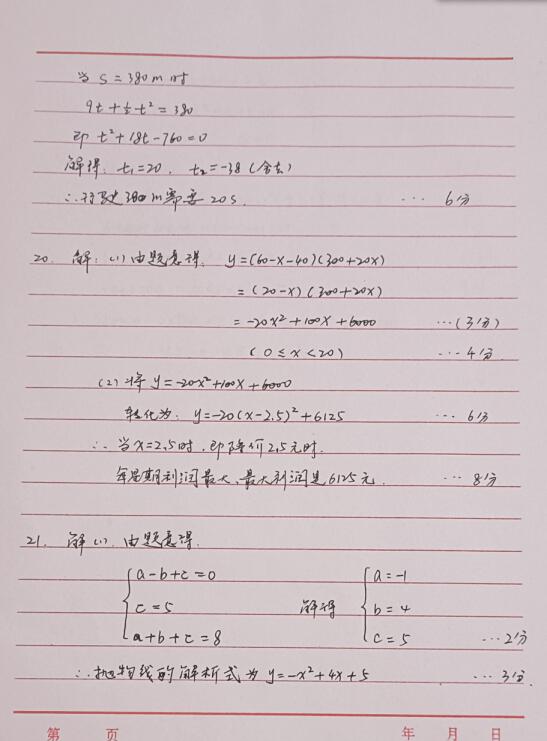 当 s=380m时
9t+½t²=380
即 t²+18t-760=0
解得: t₁=20, t₂=-38(舍去)
∴行驶380m需要20s. … 6分
20. 解: (1)由题意得. y=(60-x-40)(300+20x)
=(20-x)(300+20x)
=-20x²+100x+6000 …(3分)
(0≤x<20) …4分
(2)将 y=-20x²+100x+6000
转化为: y=-20(x-2.5)²+6125 … 6分
∴当x=2.5时,即降价2.5元时.
每星期利润最大,最大利润是6125元. … 8分
21. 解(1).由题意得.
a-b+c=0 a=-1
c=5 解得 b=4
a+b+c=8 c=5 …2分
∴抛物线的解析式为y=-x²+4x+5 …3分
第 页 年 月 日